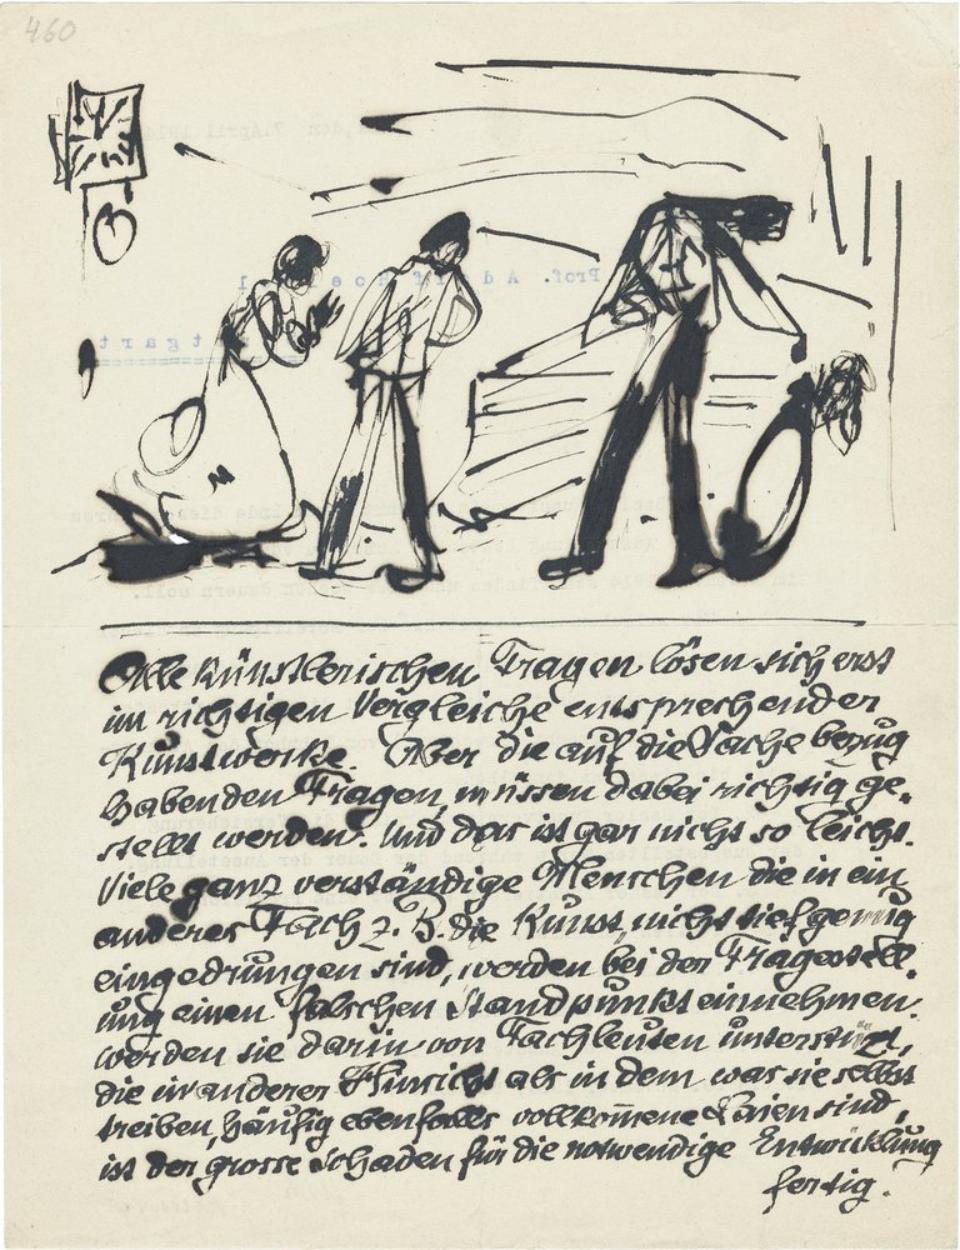 460
Prof. Adolf Hoelzel
Stuttgart
Alle künstlerischen Fragen lösen sich erst
im richtigen Vergleiche entsprechender
Kunstwerke. Aber die auf die Sache bezug
habenden Fragen, müssen dabei richtig ge-
stellt werden. Und das ist gar nicht so leicht.
Viele ganz verständige Menschen die in ein
anderes Fach z. B. die Kunst, nicht tief genug
eingedrungen sind, werden bei der Fragestell-
ung einen falschen Standpunkt einnehmen.
werden sie darin von Fachleuten unterstüzt,
die in anderer Hinsicht als in dem was sie selbst
treiben, häufig ebenfalls vollkom̅ene Laien sind,
ist der grosse Schaden für die notwendige Entwicklung
fertig.